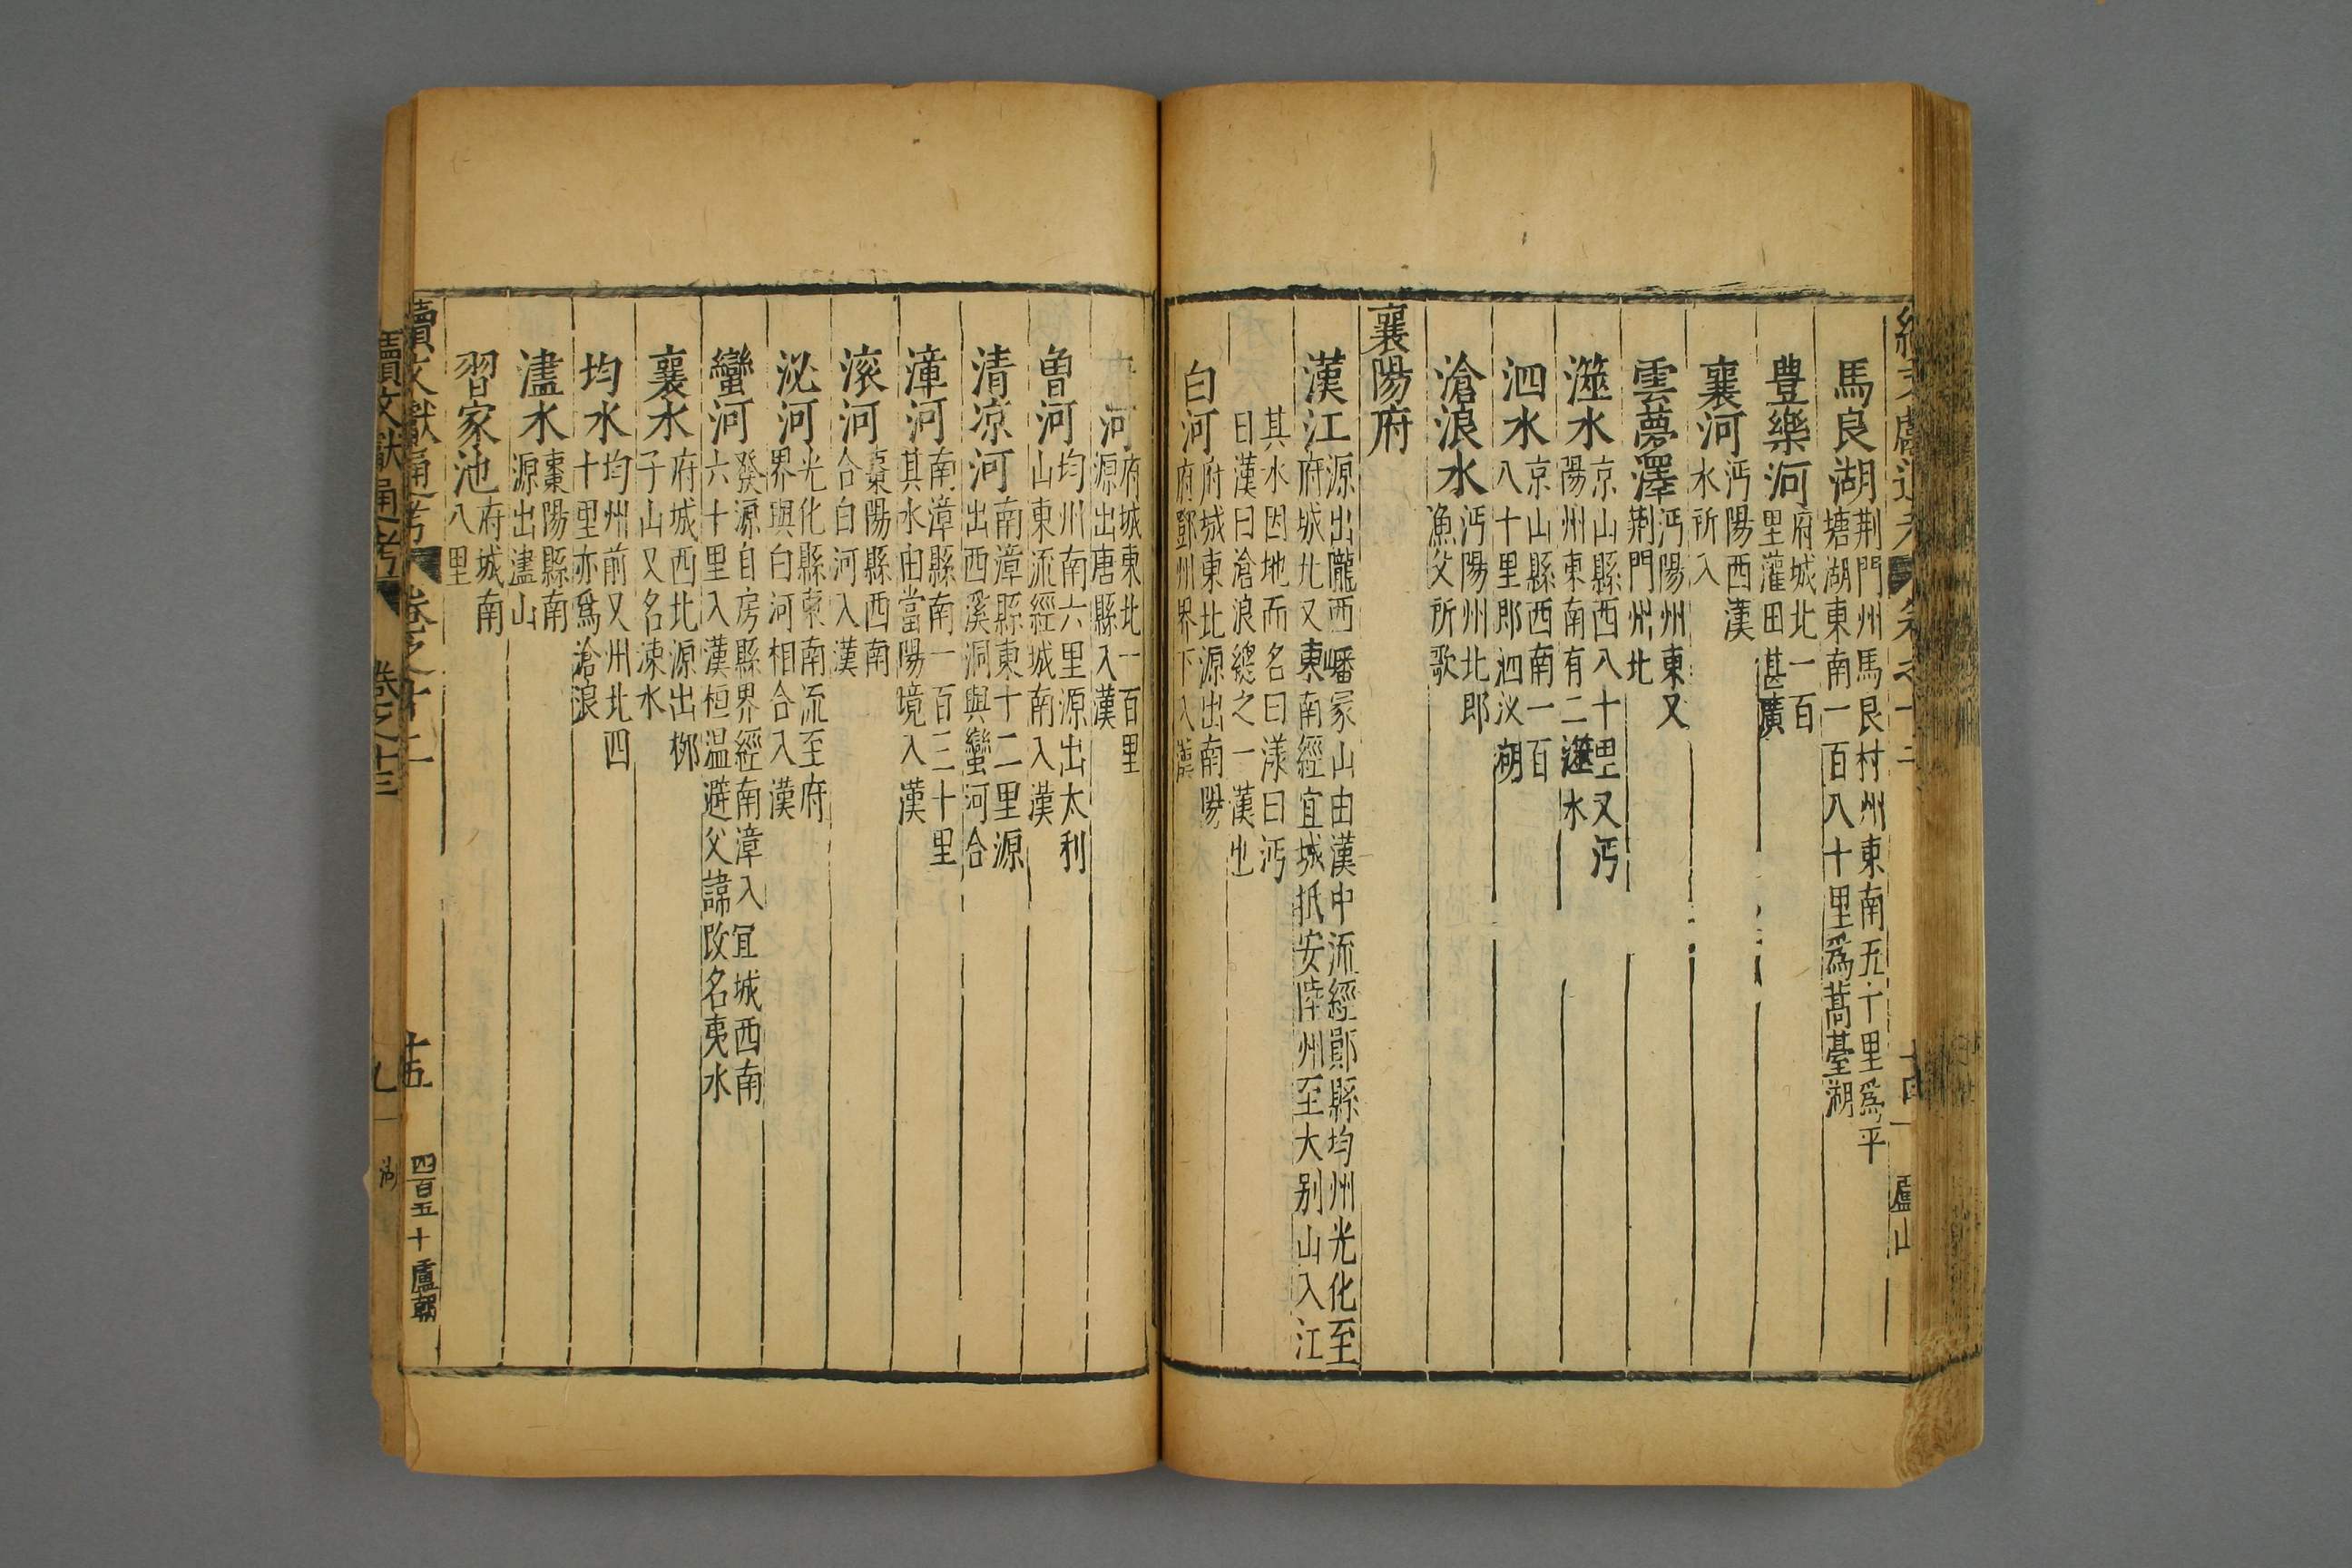 馬良湖荆門州馬良村州東南五十里爲平
塘湖東南一百八十里爲蒿臺湖
豊樂河府城北一百
里灌田甚廣
襄河沔陽西漢
水所入
雲夢澤沔陽州東又
荆門州北
澨水京山縣西八十里又沔
陽州東南有二澨水
泗水京山縣西南一百
八十里即泗汊湖
滄浪水沔陽州北即
漁父所歌
襄陽府
漢江源出隴西嶓冢山由漢中流經鄖縣均州光化至
府城北又東南經宜城抵安陸州至大别山入江
其水因地而名曰漾曰沔
曰漢曰滄浪總之一漢也
白河府城東北源出南陽
府鄧州界下入漢
河府城東北一百里
源出唐縣入漢
曾河均川南六里源出太利
山東流經城南入漢
清凉河南漳縣東十二里源
出西溪洞與蠻河合
漳河南漳縣南一百三十里
其水由當陽境入漢
滚河棗陽縣西南
合白河入漢
泌河光化縣東南流至府
界與白河相合入漢
蠻河發源自房縣界經南漳入宜城西南
六十里入漢桓温避父諱改名夷水
襄水府城西北源出栁
子山又名涑水
均水均州前又州北四
十里亦爲滄浪
濜水棗陽縣南
源出濜山
習家池府城南
八里
續文獻通考 卷之十二 十五 四百五十 盧朝
續文獻通考 卷之十三 九